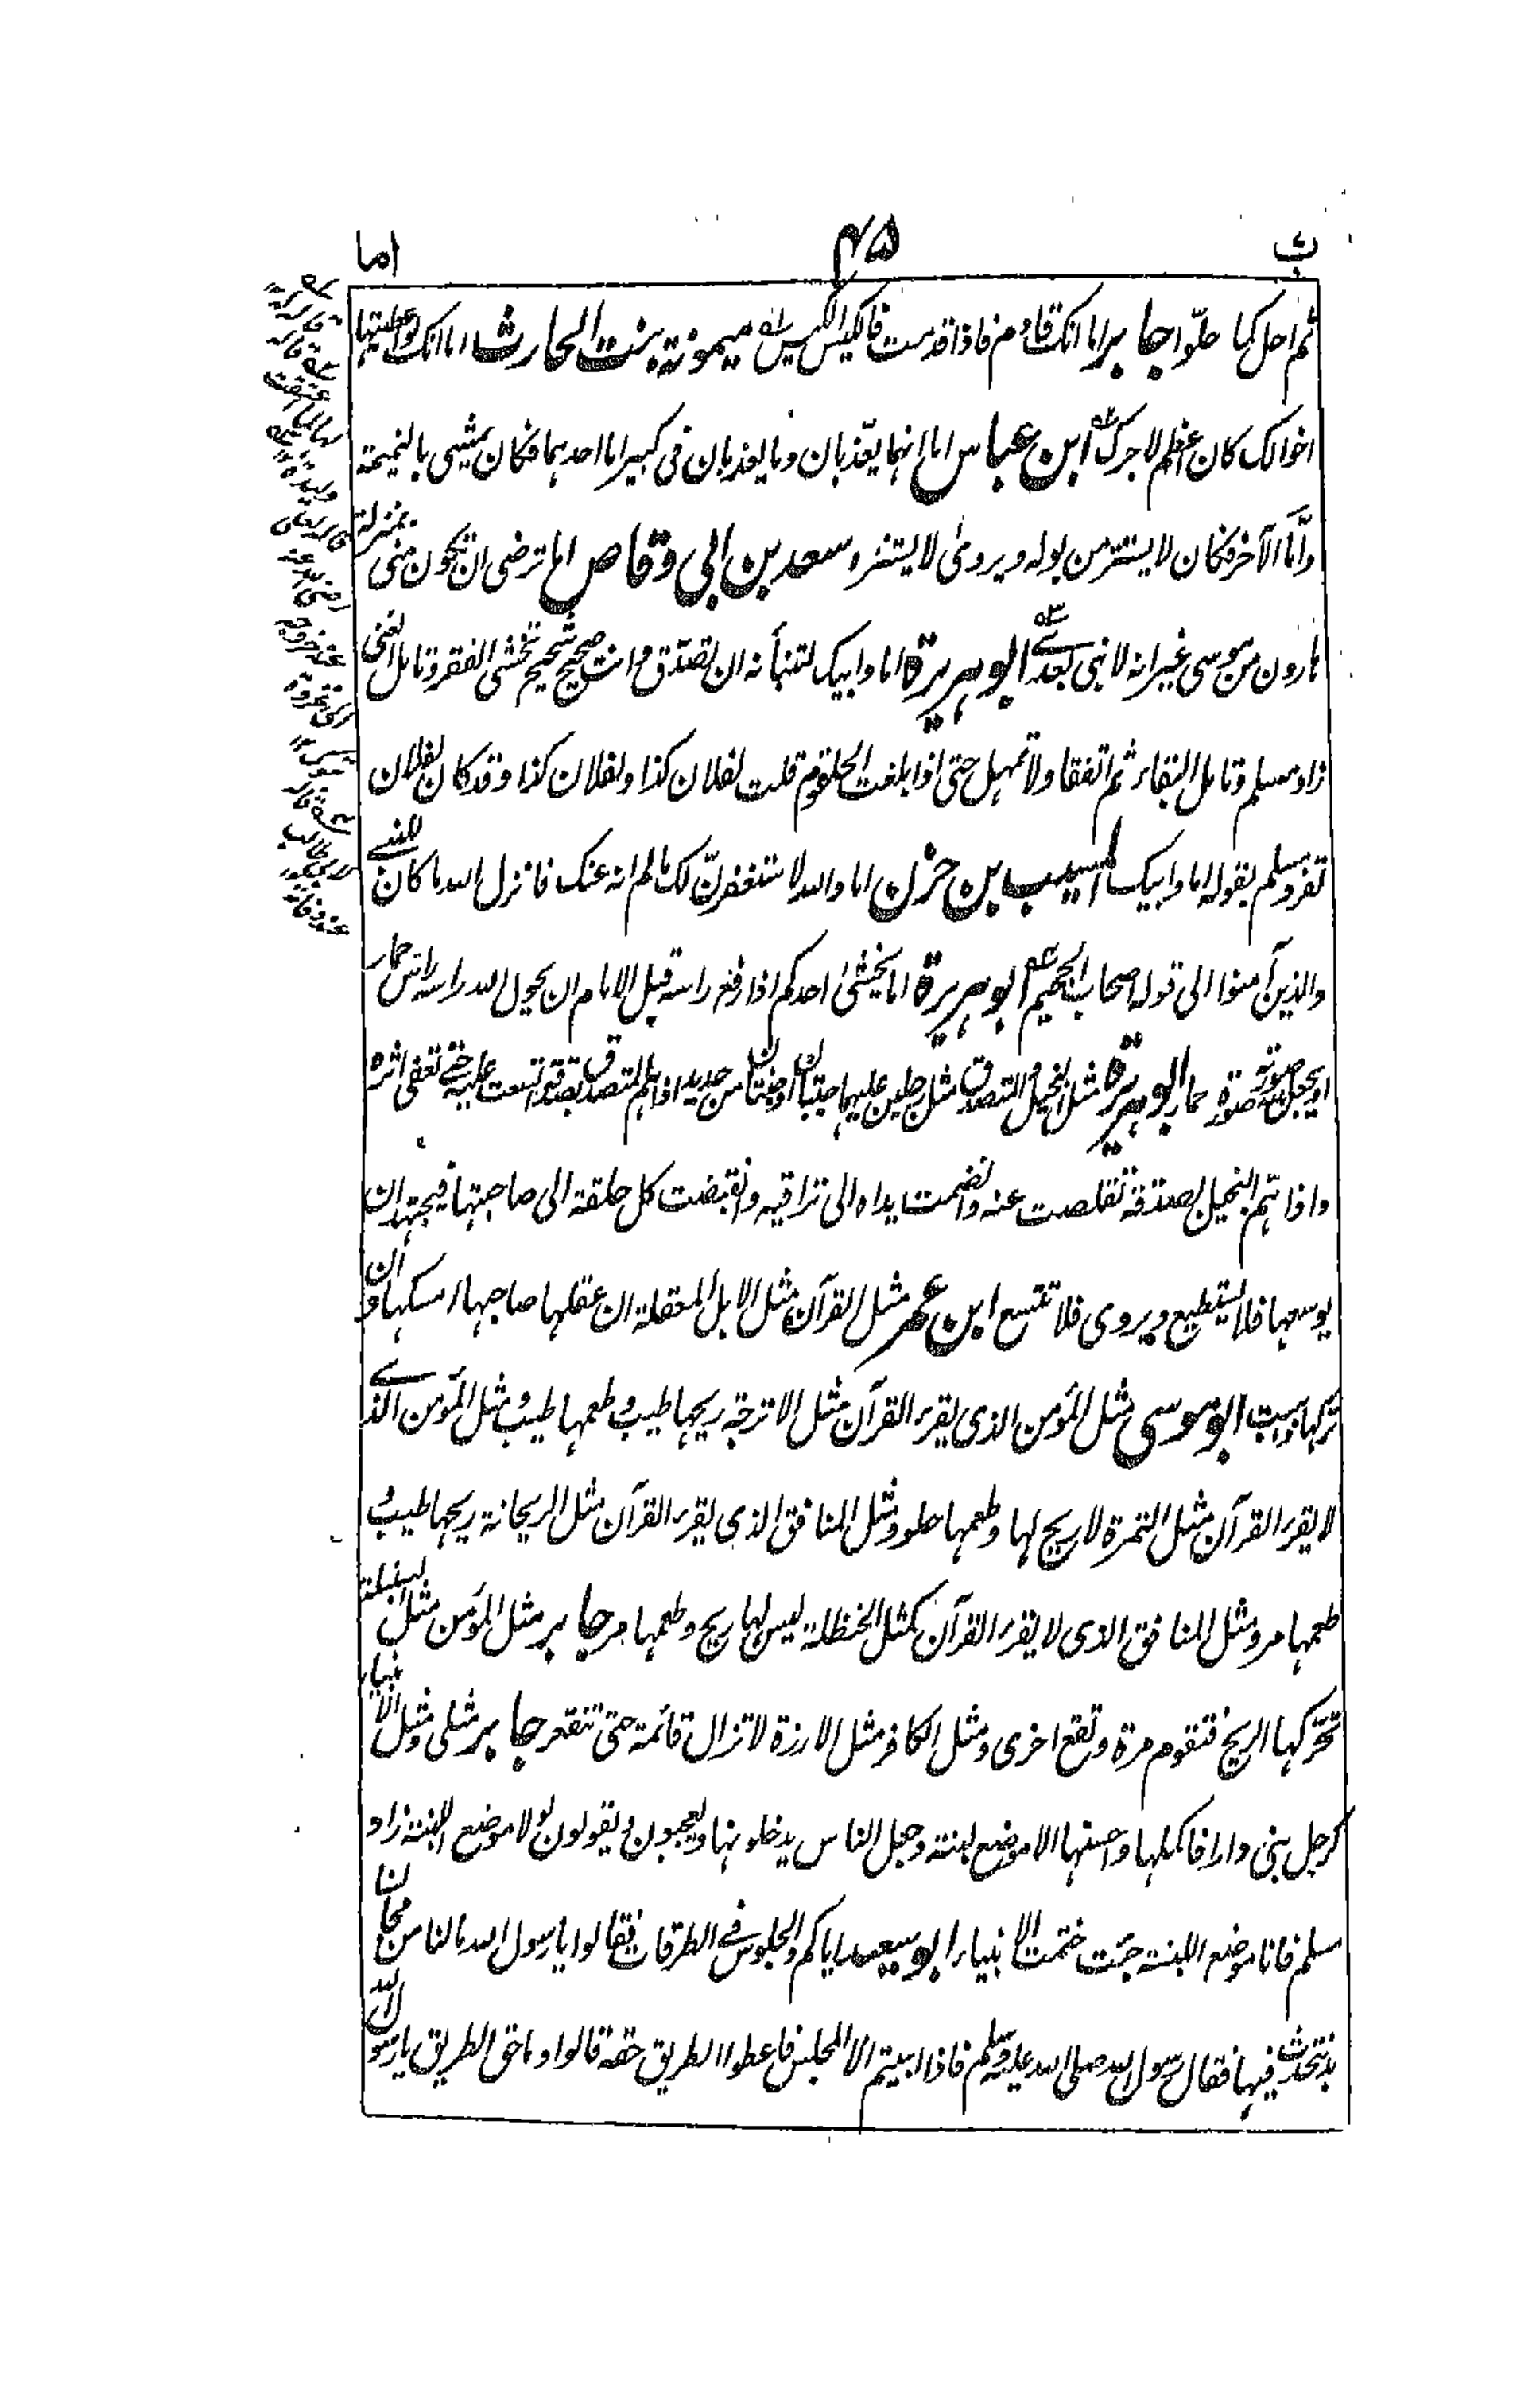 ب ۴۵ اما
ثم احل كما حلوا جابر اما انك قادم فاذا قدمت فالكيس الكيس ميمونة بنت الحارث اما انك لو اعطيتها
اخوالك كان اعظم لاجرك ابن عباس اما انهما يعذبان وما يعذبان فى كبير اما احدهما فكان يمشى بالنميمة
واما الآخر فكان لا يستتر من بوله ويروى لا يستنزه سعد بن ابى وقاص اما ترضى ان تكون منى بمنزلة
هارون من موسى غير انه لا نبى بعدى ابو هريرة اما وابيك لتنبأنه ان تصدق وانت صحيح شحيح تخشى الفقر وتامل الغنى
زاد مسلم وتامل البقاء ثم اتفقا ولا تمهل حتى اذا بلغت الحلقوم قلت لفلان كذا ولفلان كذا وقد كان لفلان
تفرد مسلم بقوله اما وابيك المسيب بن حزن اما والله لاستغفرن لك ما لم انه عنك فانزل الله ما كان للنبى
والذين آمنوا الى قوله اصحاب الجحيم ابو هريرة اما يخشى احدكم اذا رفع راسه قبل الامام ان يحول الله راسه راس حمار
او يجعل الله صورته صورة حمار ابو هريرة مثل البخيل والمتصدق مثل رجلين عليهما جبتان او جنتان من حديد اذا هم المتصدق بصدقة اتسعت عليه حتى تعفى اثره
واذا هم البخيل بصدقة تقلصت عنه وانضمت يداه الى تراقيه وانقبضت كل حلقة الى صاحبتها فيجتهد ان
يوسعها فلا يستطيع ويروى فلا تتسع ابن عمر مثل القرآن مثل الابل المعقلة ان عقلها صاحبها امسكها وان
تركها ذهبت ابو موسى مثل المؤمن الذى يقرء القرآن مثل الاترجة ريحها طيب وطعمها طيب ومثل المؤمن الذى
لا يقرء القرآن مثل التمرة لا ريح لها وطعمها حلو ومثل المنافق الذى يقرء القرآن مثل الريحانة ريحها طيب و
طعمها مر ومثل المنافق الذى لا يقرء القرآن كمثل الحنظلة ليس لها ريح وطعمها مر جابر مثل المؤمن مثل السنبلة
تحركها الريح فتقوم مرة وتقع اخرى ومثل الكافر مثل الارزة لا تزال قائمة حتى تنقعر جابر مثلى ومثل الانبياء
كرجل بنى دارا فاكملها واحسنها الا موضع لبنة وجعل الناس يدخلونها ويعجبون ويقولون لولا موضع اللبنة زاد
مسلم فانا موضع اللبنة جئت ختمت الانبياء ابو سعيد اياكم والجلوس فى الطرقات فقالوا يا رسول الله ما لنا من مجالسنا
بد نتحدث فيها فقال رسول الله صلى الله عليه وسلم فاذا ابيتم الا المجلس فاعطوا الطريق حقه قالوا وما حق الطريق يا رسول الله